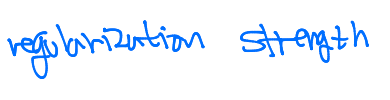 regularization strength